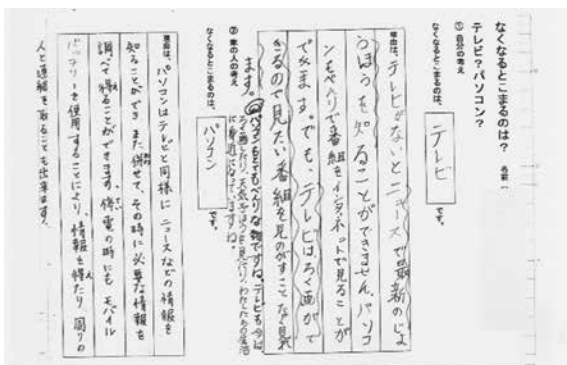 なくなるとこまるのは？
テレビ？パソコン？
名前
① 自分の考え
なくなるとこまるのは、
テレビ
です。
理由は、テレビがないとニュースで最新のじょ
うほうを知ることができません。パソコ
ンもべんりで番組をインタネットで見ることが
できます。でも、テレビはろく画がで
きるので見たい番組を見のがすことなく見れ
ます。
パソコンもとてもべんりな物ですね。テレビも今は
ろく画したり、天気よほうを見たり、わたしたちの生活
に身近になっていますね。
② 家の人の考え
なくなるとこまるのは、
パソコン
です。
理由は、パソコンはテレビと同様に ニュースなどの情報を
知ることができ また併せて、その時に必要な情報を
調べて得ることができます。停電の時にも モバイル
バッテリーを使用することにより、情報を得たり 周りの
人と連絡を取ることも出来ます。